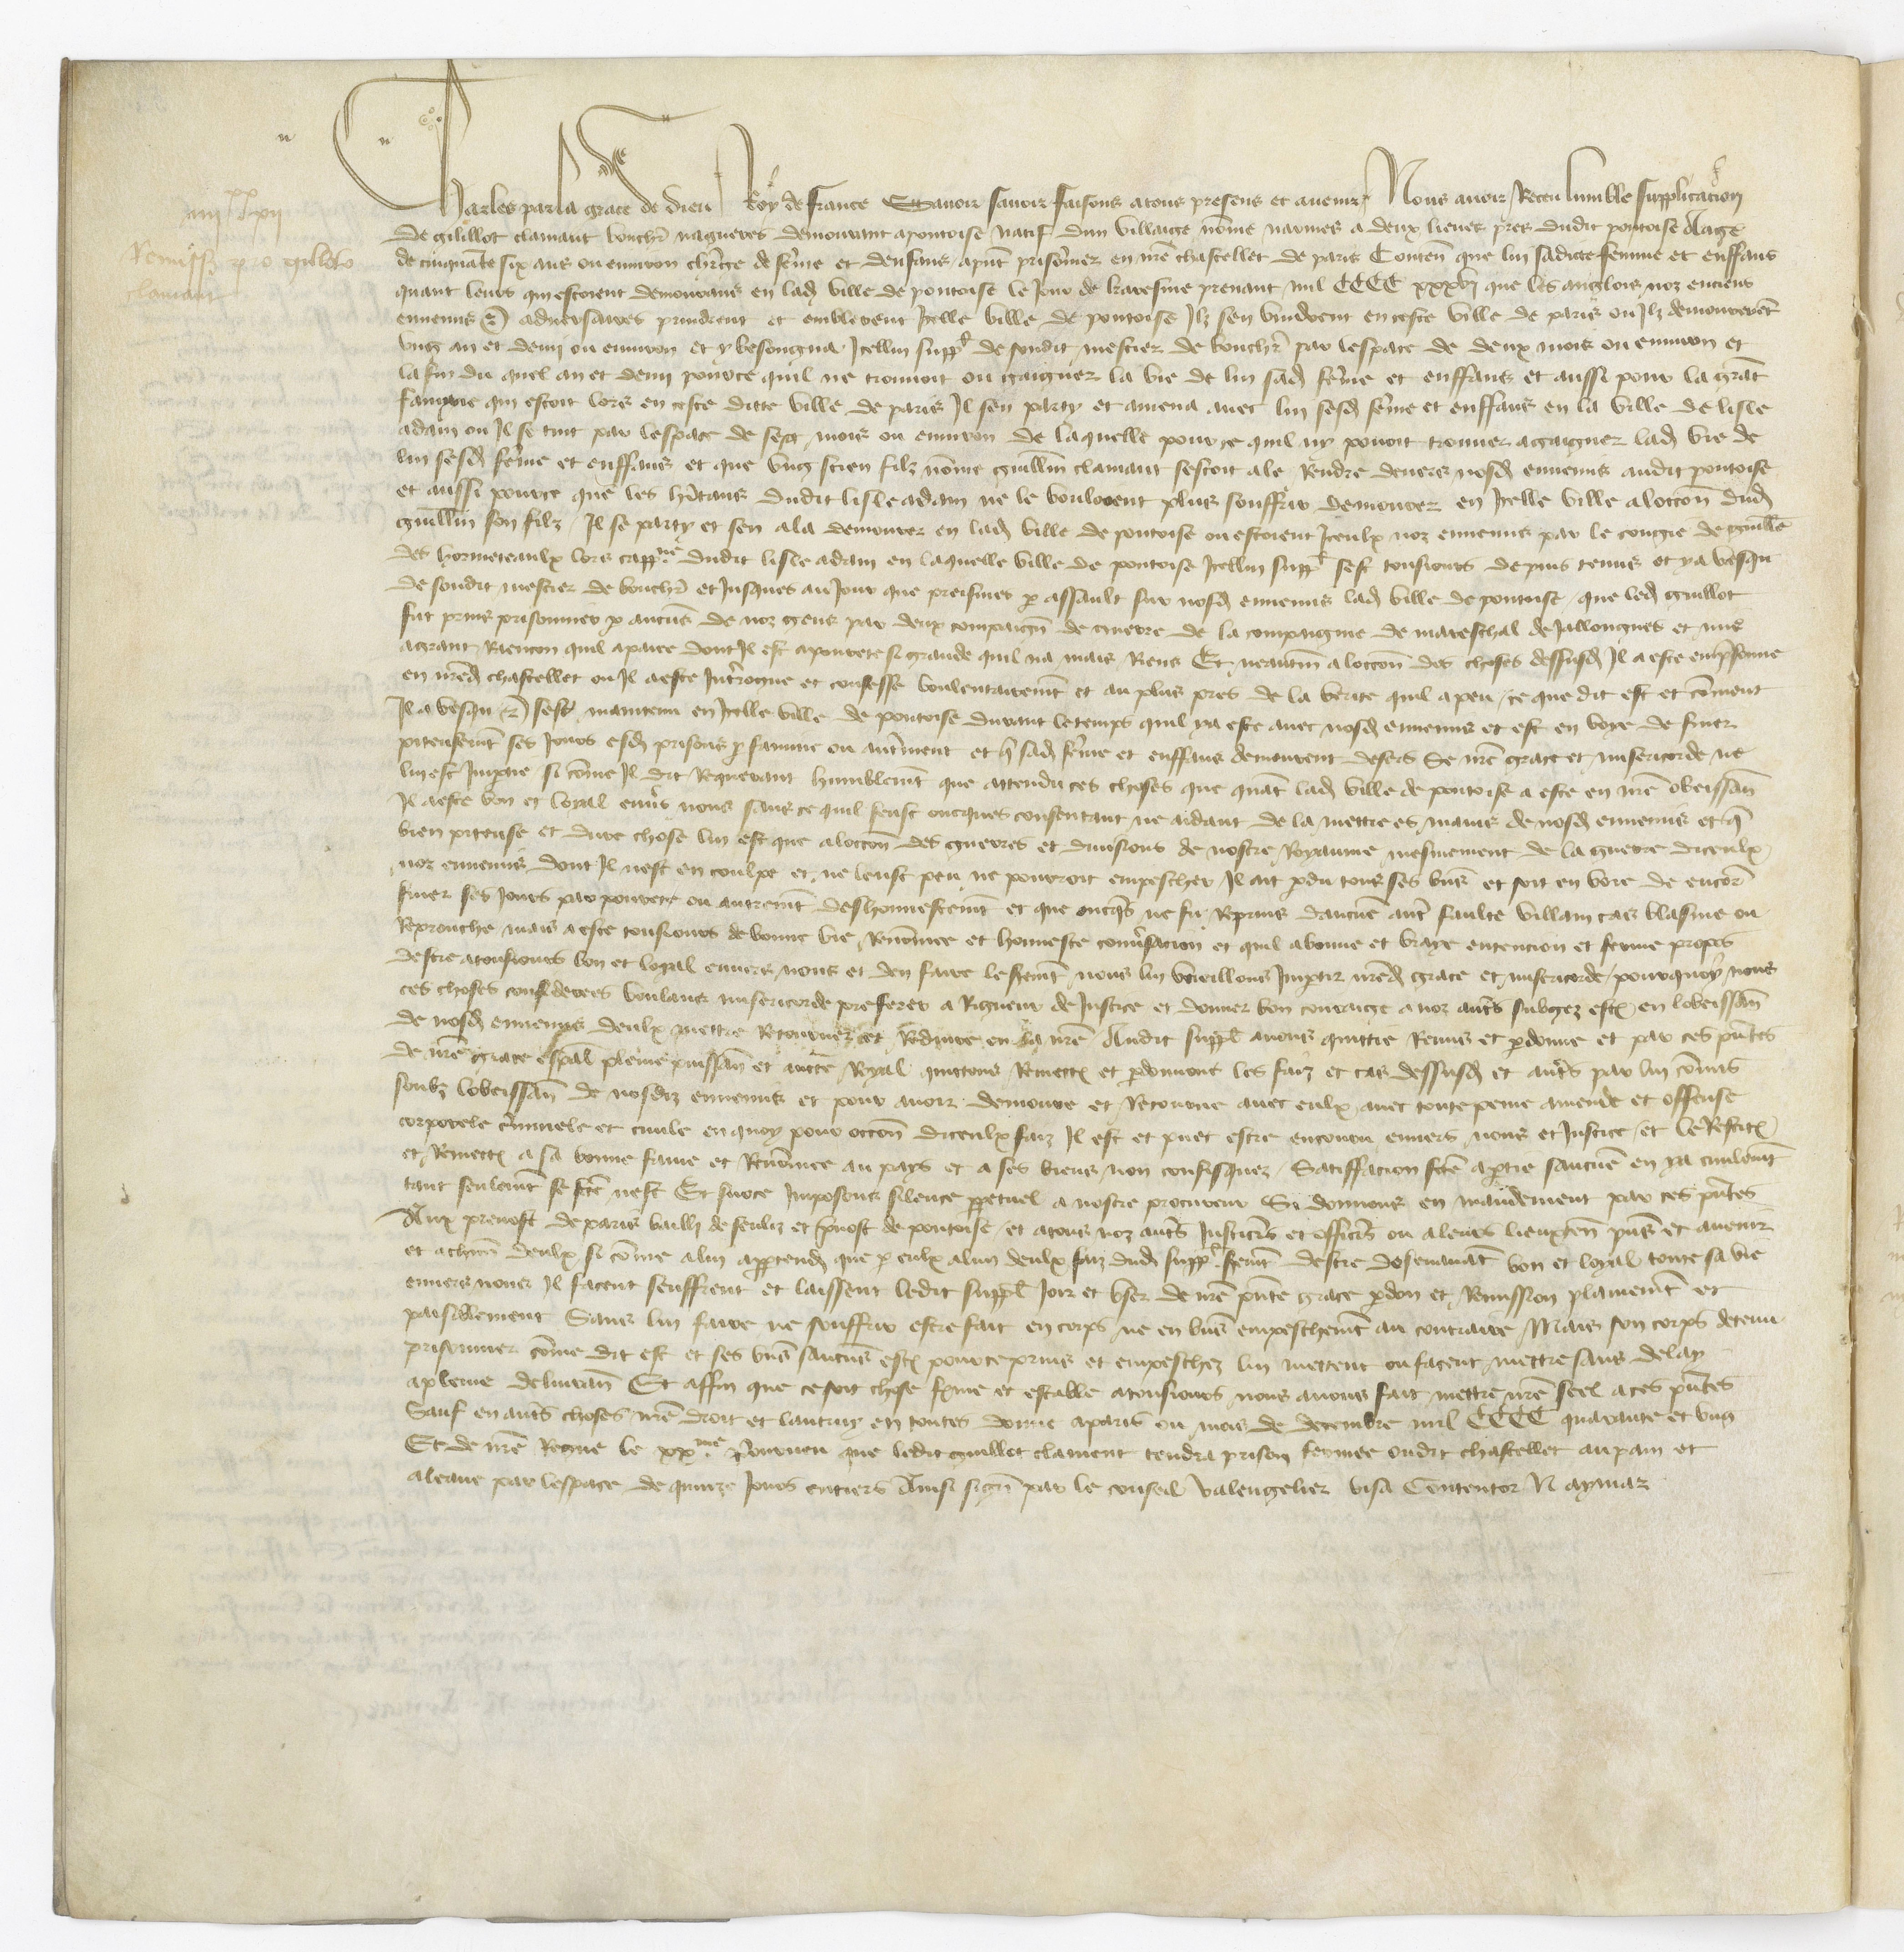 iiii^xx xii
Remissio pro guilloto
clamant
Charles par la grace de dieu Roy de france Savoir savoir faisons a tous presens et avenir Nous avoir Receu lumble supplicacion
de gilillot clamant bouchr̃ nagueres demourant a pontoise natif dun villaige nõme a deux lieues pres dudit pontoise Aage
de cinquãte six ans ou environ chrẽge de fẽme et denfans apñt prisõnier en nr̃e chastellet de paris Conteñ que lui sadicte femme et enffans
quant leurs qui estoient demourans en lad ville de pontoise le jour de karesme prenant mil CCCC xxxvj que les anglois noz enciens
ennemis et adversaires prindrent et emblerent Icelle ville de pontoise Ilz sen vindrent en ceste ville de paris ou Ilz demourerẽt
ung an et demi ou environ et y besongna Icellui suppl̃ de sondit mestier de bouchr̃ par lespace de deux mois ou environ et
la fin du quel an et demi pource quil ne trouvoit ou gaigner la vie de lui sad fẽme et enffans et aussi pour la grãt
famine qui estoit lors en ceste ditte ville de paris Il sen party et amena avec lui sesd fẽme et enffans en la ville de lisle
adam ou Il se tint par lespace de sept mois ou environ de laquelle pour ce quil ny povoit trouver a gaigner lad vie de
lui sesd fẽme et enffans et que ung scien filz nõme guill̃m clamant sestoit ale Rendre devers nosd ennemis audit pontoise
et aussi pource que les hĩtans dudit lisleadam ne le vouloient plus souffrir demourer en Icelle ville a loccoñ dud
guill̃m son filz Il se party et sen ala demourer en lad ville de pontoise ou estoient Iceulx noz ennemis par le congie de guill̃e
des hormeteaulx lors cappne dudit lisle adam en laquelle ville de pontoise Icellui suppl̃ sest tousiours depuis tenus et y a vesqu
de sondit mestier de bouchr̃ et Jusques au Jour que preismes p assault sur nosd ennemis lad ville de pontoise que led guillot
fut prins prisonnier p aucũs de noz gens par deux compaigñ de guerre de la compaignie de mareschal de Jallongnes et mis
a grant Raencon quil a paiee dont Il est a pourete si grande quil na mais Riens Et neãtm̃ a loccoñ des choses dessusd Il a este emp̃sonne
en nr̃ed chastellet ou Il a este Int̃rogue et confesse voulentairemẽt et au plus pres de la verite quil a peu ce que dit est et cõment
Il a vesqu et sest maintenu en Icelle ville de pontoise durant le temps quil y a este avec nosd ennemis et est en voye de finer
piteusemẽt ses Jours esd prisons p famine ou autr̃ment et q̃ sad fẽme et enffans demourent desers Se nr̃e grace et misericorde ne
lui est Imptie si cõme Il dit Requerant humblemẽt que attendu ces choses que quãt lad ville de pontoise a este en nr̃e obeissañ
Il a este bon et loyal env̾s nous sans ce quil feust oncques consentant ne aidant de la mettre es mains de nosd ennemis et q̃
bien piteuse et dure chose lui est que a loccoñ des guerres et divisions de nostre Royaume mesmement de la guerre diceulx
noz ennemis dont Il nest en coulpe et ne leust peu ne pourroit empescher Il ait pdu tous ses biẽs et soit en voie de encor̃
finer ses Jours par pourete ou autremẽt deshonnestemẽt et que oncq̃s ne fu Reprins daucũe autr̃ faulte villain cas blasme ou
Reprouche mais a este tousiours de bonne vie Renõmee et honneste conv̾sacion et quil a bonne et vraye entencion et ferme propos
destre a tousiours bon et loyal envers nous et den faire le sermẽt nous lui vueillons Imptir nr̃ed grace et misericorde pourquoy nous
ces choses considerees voulans misericorde preferer a Rigueur de Justice et donner bon couraige a noz autr̃s subgez est en lobeissañ
de nosd ennemis deulx mettre Retourner et Reduire en la nr̃e Audit suppl̃ avons quittie Remis et pdonne et par ces pñtes
de nr̃e grace esp̃al pleine puissañ et auctẽ Royal quittons Remett et pdonnons les faiz et cas dessusd et autr̃s par lui cõmis
soubz lobeissañ de nosdiz ennemis et pour avoir demoure et Retourne avec eulx avec toute peine amende et offense
corporele cr̃iminele et civile en quoy pour occoñ diceulx faiz Il est et puet estre encouru envers nous et Justice et le Restit
et Remett a sa bonne fame et Renõmee au pays et a ses biens non confisquez Satisfacion fcẽ a ptie saucũe en y a civilemẽt
tant seulemẽt se fcẽ nest Et surce Imposons silence ppetuel a nostre procureur Si donnons en mandement par ces pñtes
Aux prevost de paris bailli de senliz et p̃vost de pontoise et a tous noz autr̃s Justicr̃s et officr̃s ou a leurs lieuxteñ pñs et avenir
et a chacũ deulx si cõme a lui app̃tend que p eulx a lun deulx faiz dud suppl̃ sermẽt destre doresenavãt bon et loyal toute sa vie
envers nous Il facent seuffrent et laissent ledit suppl̃ Joir et user de nr̃e pñte grace pdon et Remission plainemẽt et
paisiblement Sans lui faire ne souffrir estre fait en corps ne en biẽs empeschemẽt au contraire Mais son corps detenu
prisonnier cõme dit est et ses biẽs saucũs est pource prins et empeschez lui mettent ou facent mettre sans delay
a pleine delivrañ Et affin que ce soit chose ferme et estable a tousiours nous avons fait mettre nr̃e seel a ces pñtes
Sauf en autr̃s choses nr̃e droit et lautruy en toutes donne a paris ou mois de decembre mil CCCC quarante et ung
Et de nr̃e Regne le xxme p̃ourveu que ledit guillot clament tendra prison fermee oudit chastellet au pain et
a leaue par lespace de quinze Jours entiers Ainsi sigñ par le conseil valengelier visa Contentor N aymar